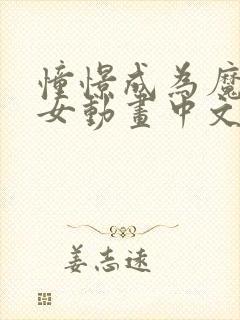 憧憬成為魔
女動畫中文
姜志遠